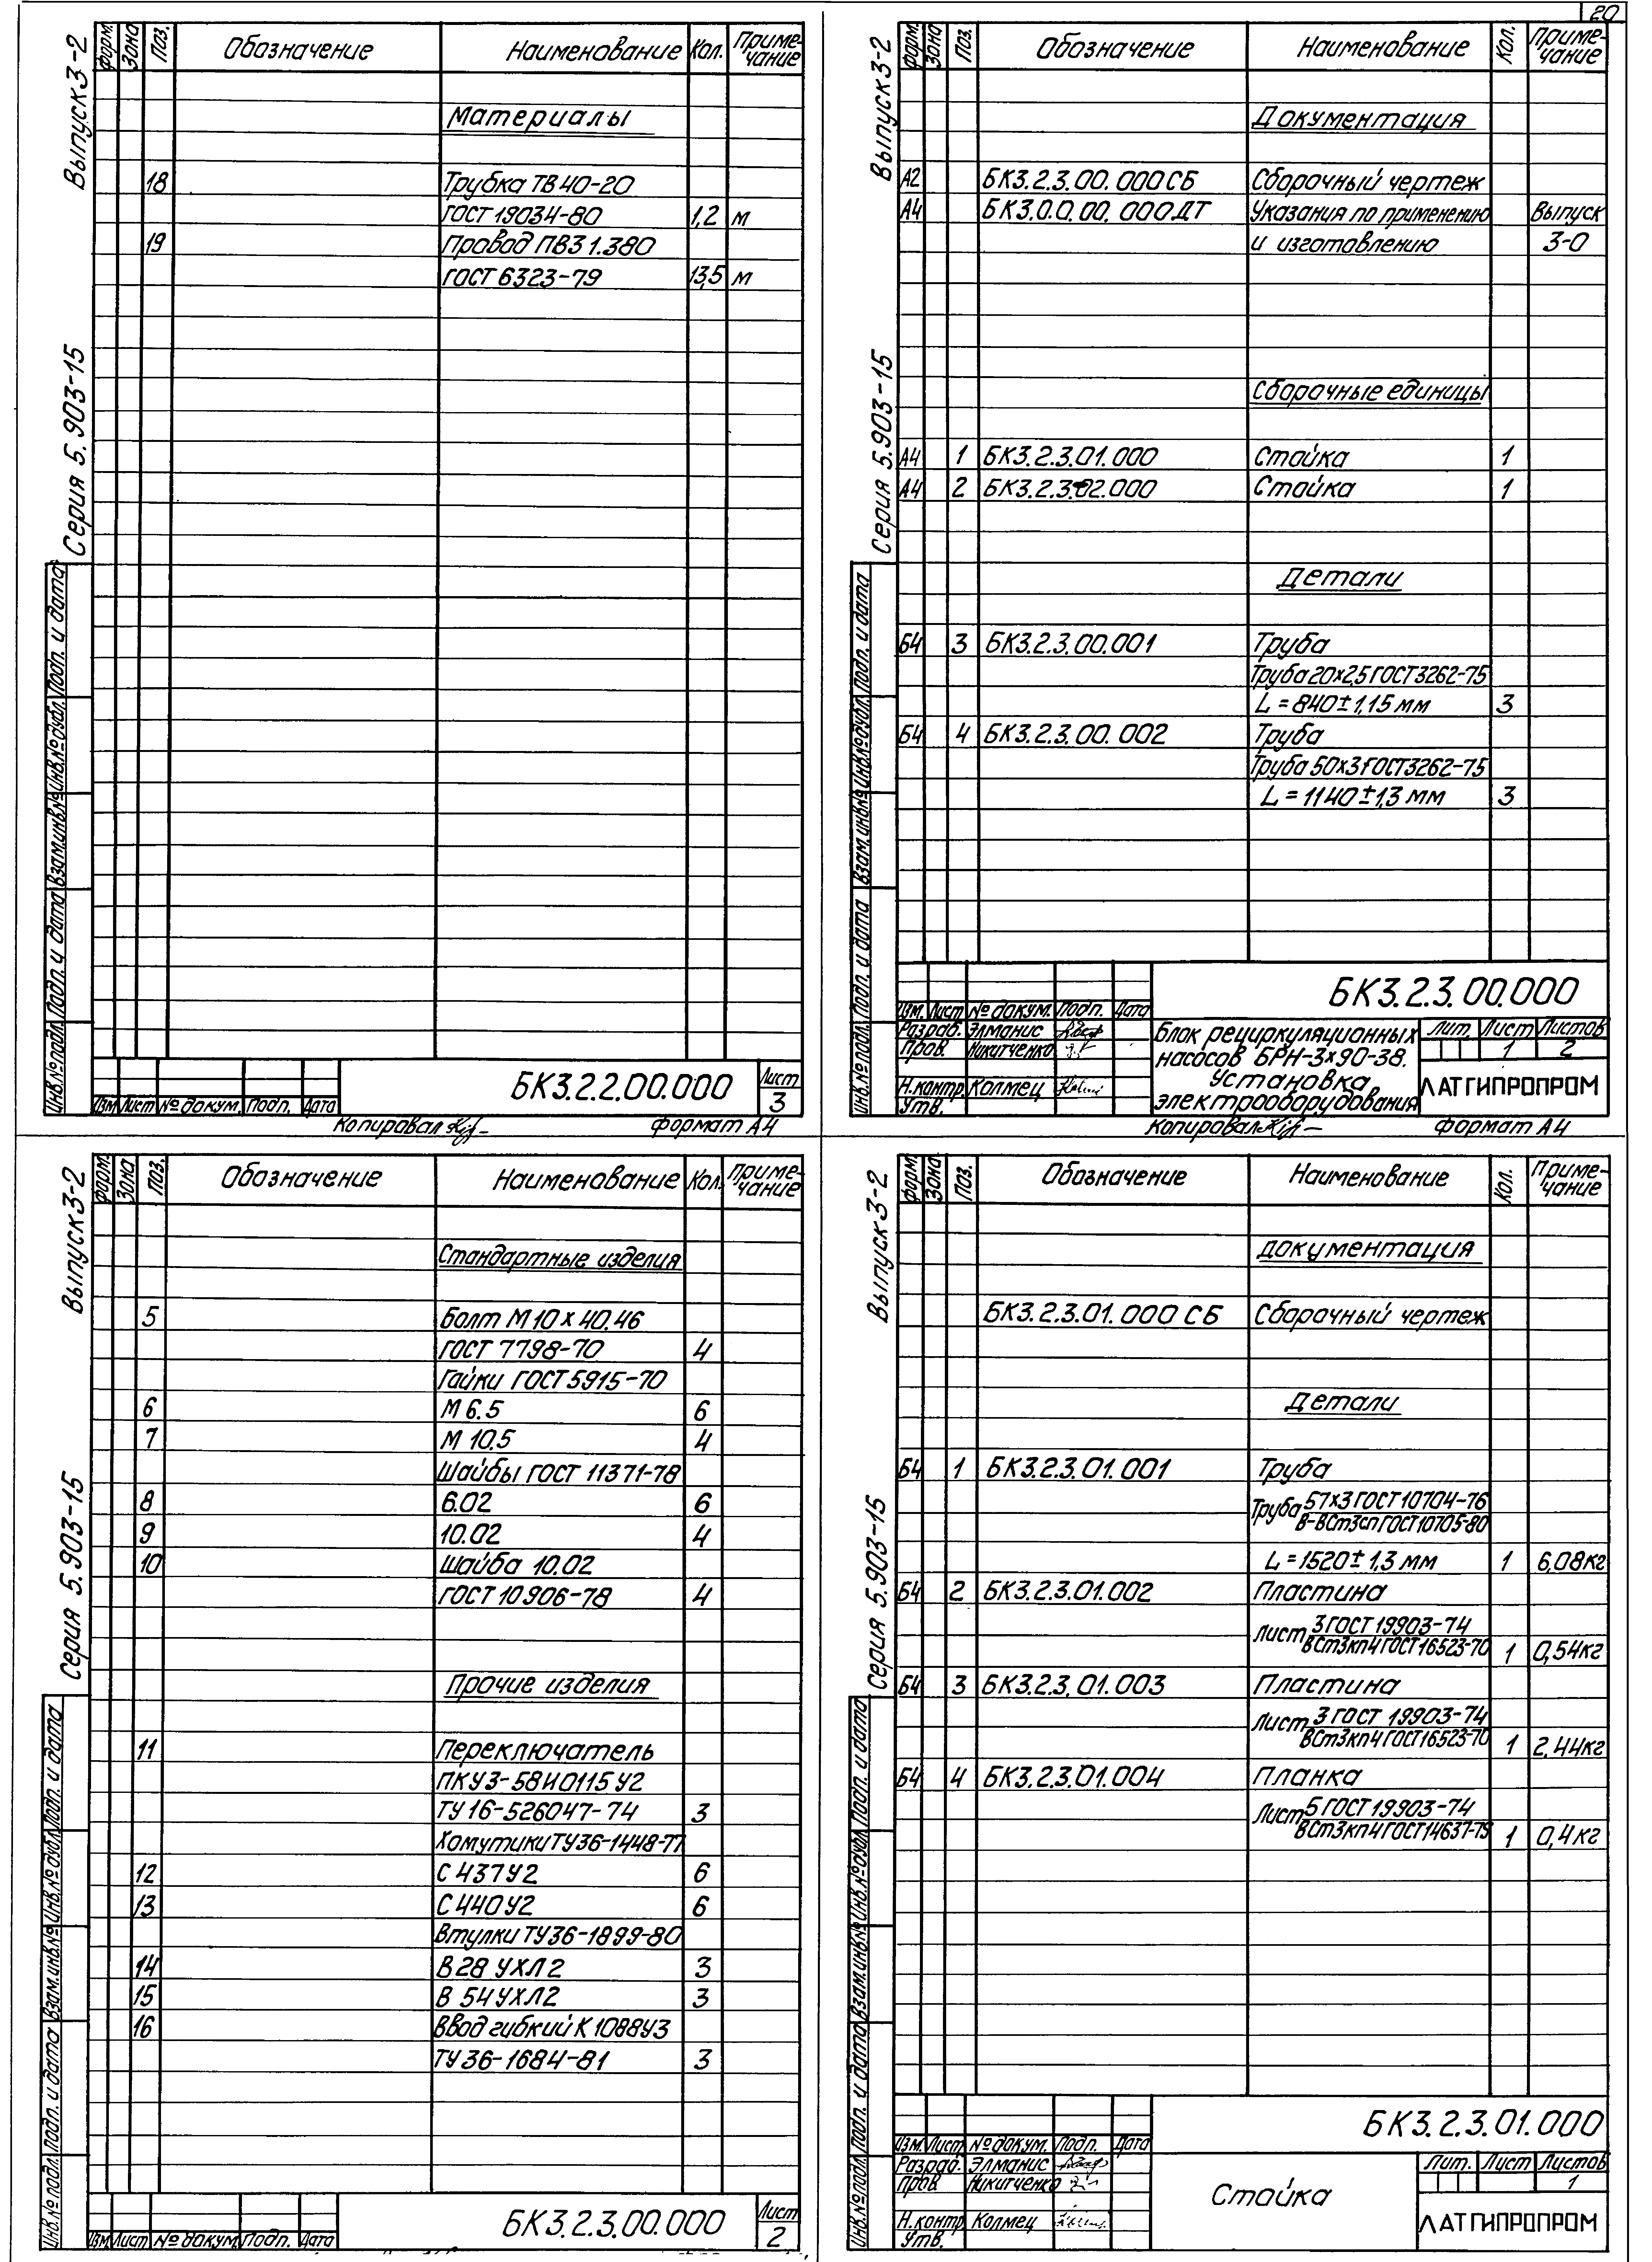 20
Выпуск 3-2
Серия 5.903-15
Форм. Зона Поз. Обозначение Наименование Кол. Примечание
Материалы
18 Трубка ТВ 40-20
ГОСТ 19034-80 1,2 м
19 Провод ПВ3 1.380
ГОСТ 6323-79 13,5 м
Инв.№ подл. Подп. и дата Взам.инв.№ Инв.№ дубл. Подп. и дата
Изм Лист № докум. Подп. Дата
БК3.2.2.00.000
Лист
3
Копировал
Формат А4
Выпуск 3-2
Серия 5.903-15
Форм. Зона Поз. Обозначение Наименование Кол. Примечание
Документация
А2 БК3.2.3.00.000СБ Сборочный чертеж
А4 БК3.0.0.00.000ДТ Указания по применению Выпуск
и изготовлению 3-0
Сборочные единицы
А4 1 БК3.2.3.01.000 Стойка 1
А4 2 БК3.2.3.02.000 Стойка 1
Детали
Б4 3 БК3.2.3.00.001 Труба
Труба 20х2,5 ГОСТ3262-75
L = 840±1,15 мм 3
Б4 4 БК3.2.3.00.002 Труба
Труба 50х3 ГОСТ3262-75
L = 1140±1,3 мм 3
Инв.№ подл. Подп. и дата Взам.инв.№ Инв.№ дубл. Подп. и дата
БК3.2.3.00.000
Изм. Лист № докум. Подп. Дата
Разраб. Элманис
Пров. Никитченко
Н.контр. Колмец
Утв.
Блок рециркуляционных
насосов БРН-3х90-38.
Установка
электрооборудования
Лит. Лист Листов
1 2
ЛАТГИПРОПРОМ
Копировал
Формат А4
Выпуск 3-2
Серия 5.903-15
Форм. Зона Поз. Обозначение Наименование Кол. Примечание
Стандартные изделия
5 Болт М10 х 40.46
ГОСТ 7798-70 4
Гайки ГОСТ 5915-70
6 М 6.5 6
7 М 10.5 4
Шайбы ГОСТ 11371-78
8 6.02 6
9 10.02 4
10 Шайба 10.02
ГОСТ 10906-78 4
Прочие изделия
11 Переключатель
ПКУ3-58И0115 У2
ТУ 16-526047-74 3
Хомутики ТУ36-1448-77
12 С 437У2 6
13 С 440У2 6
Втулки ТУ36-1899-80
14 В 28 УХЛ 2 3
15 В 54 УХЛ2 3
16 Ввод гибкий К 1088У3
ТУ 36-1684-81 3
Инв.№ подл. Подп. и дата Взам.инв.№ Инв.№ дубл. Подп. и дата
Изм. Лист № докум. Подп. Дата
БК3.2.3.00.000
Лист
2
Выпуск 3-2
Серия 5.903-15
Форм. Зона Поз. Обозначение Наименование Кол. Примечание
Документация
БК3.2.3.01.000 СБ Сборочный чертеж
Детали
Б4 1 БК3.2.3.01.001 Труба
Труба 57х3 ГОСТ 10704-76
В-ВСт3сп ГОСТ 10705-80
L = 1520±1,3 мм 1 6,08кг
Б4 2 БК3.2.3.01.002 Пластина
Лист 3 ГОСТ 19903-74
ВСт3кп4 ГОСТ 16523-70 1 0,54кг
Б4 3 БК3.2.3.01.003 Пластина
Лист 3 ГОСТ 19903-74
ВСт3кп4 ГОСТ 16523-70 1 2,44кг
Б4 4 БК3.2.3.01.004 Планка
Лист 5 ГОСТ 19903-74
ВСт3кп4 ГОСТ 14637-79 1 0,4кг
Инв.№ подл. Подп. и дата Взам.инв.№ Инв.№ дубл. Подп. и дата
БК3.2.3.01.000
Изм. Лист № докум. Подп. Дата
Разраб. Элманис
Пров. Никитченко
Н.контр. Колмец
Утв.
Стойка
Лит. Лист Листов
1
ЛАТГИПРОПРОМ